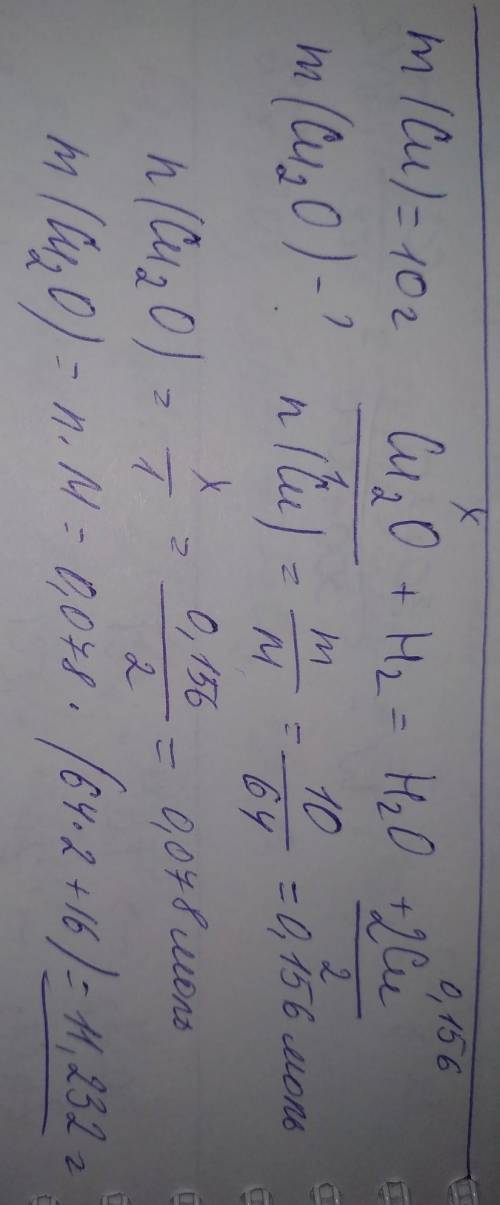 x 0,156
m(Cu) = 10г Cu₂O + H₂ = H₂O + 2Cu
1 2
m(Cu₂O) - ? n(Cu) = m/M = 10/64 = 0,156 моль
n(Cu₂O) = x/1 = 0,156/2 = 0,078 моль
m(Cu₂O) = n · M = 0,078 · (64·2+16) = 11,232 г